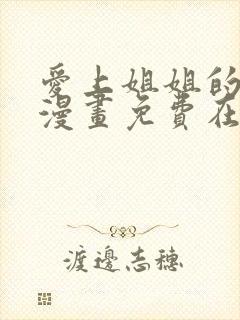 愛上姐姐的
漫畫免費在
渡邊志穗